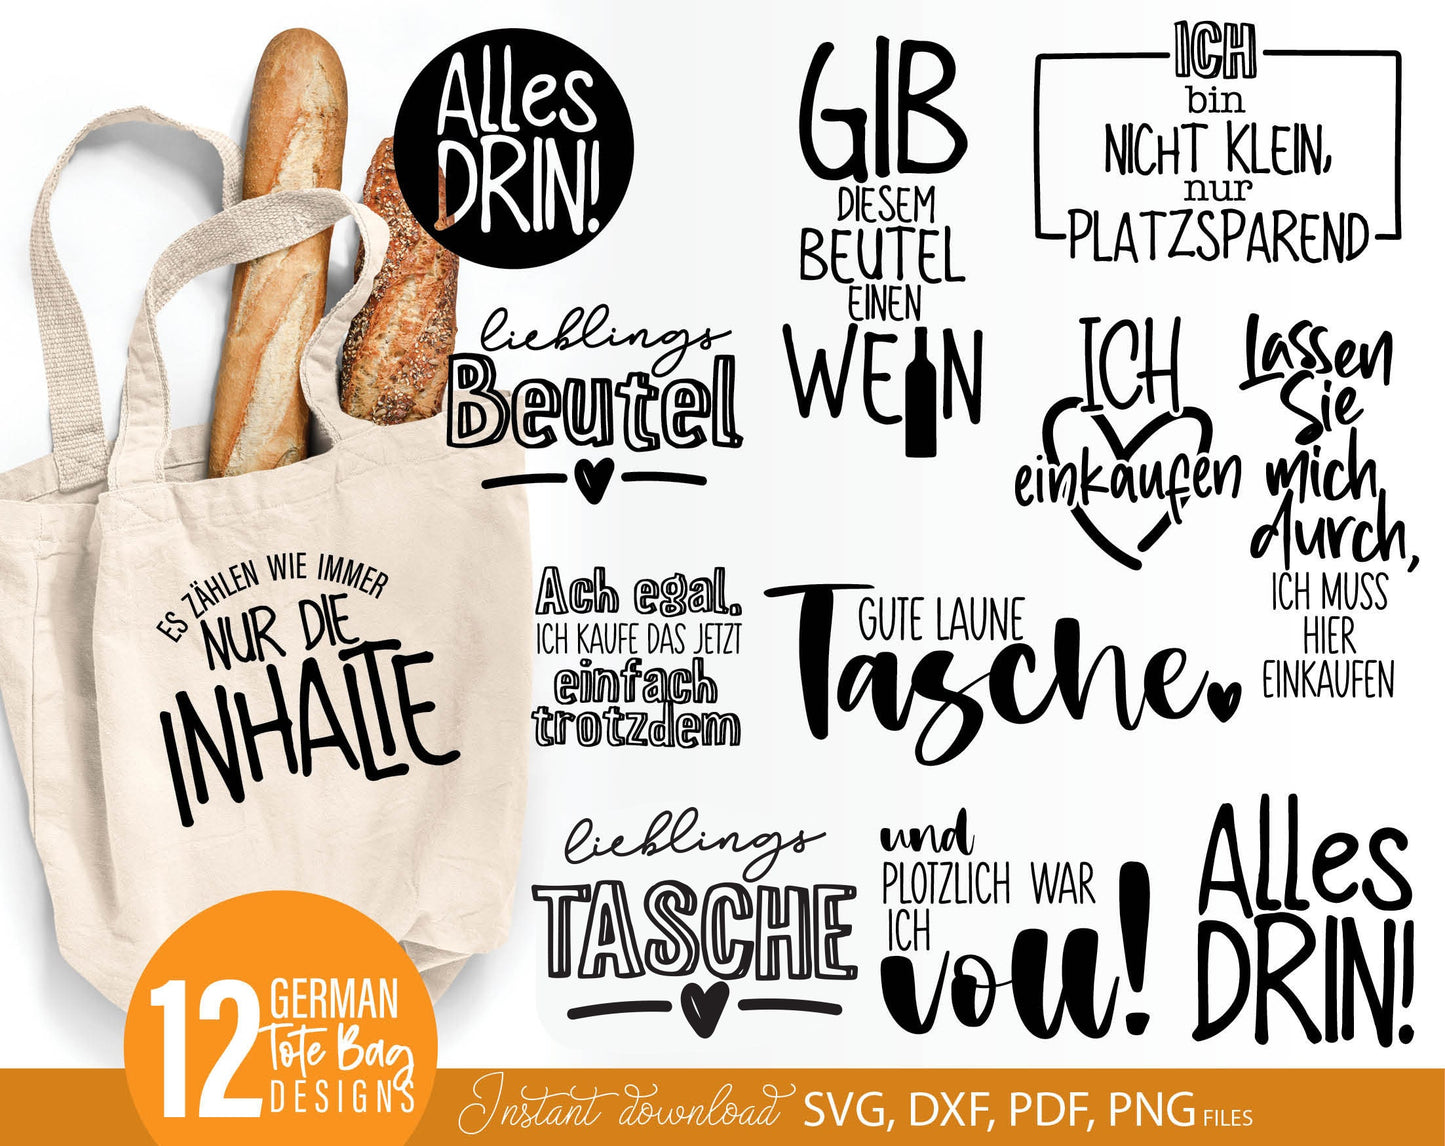 ALLES
DRIN!
GIB
DIESEM
BEUTEL
EINEN
WEIN
ICH
bin
NICHT KLEIN,
nur
PLATZSPAREND
lieblings
Beutel
ICH
einkaufen
Lassen
Sie
mich
durch,
ICH MUSS
HIER
EINKAUFEN
ES ZÄHLEN WIE IMMER
NUR DIE
INHALTE
Ach egal.
ICH KAUFE DAS JETZT
einfach
trotzdem
GUTE LAUNE
Tasche
lieblings
TASCHE
und
PLOTZLICH WAR
ICH
voll!
ALLES
DRIN!
12
GERMAN
Tote Bag
DESIGNS
Instant download SVG, DXF, PDF, PNG FILES